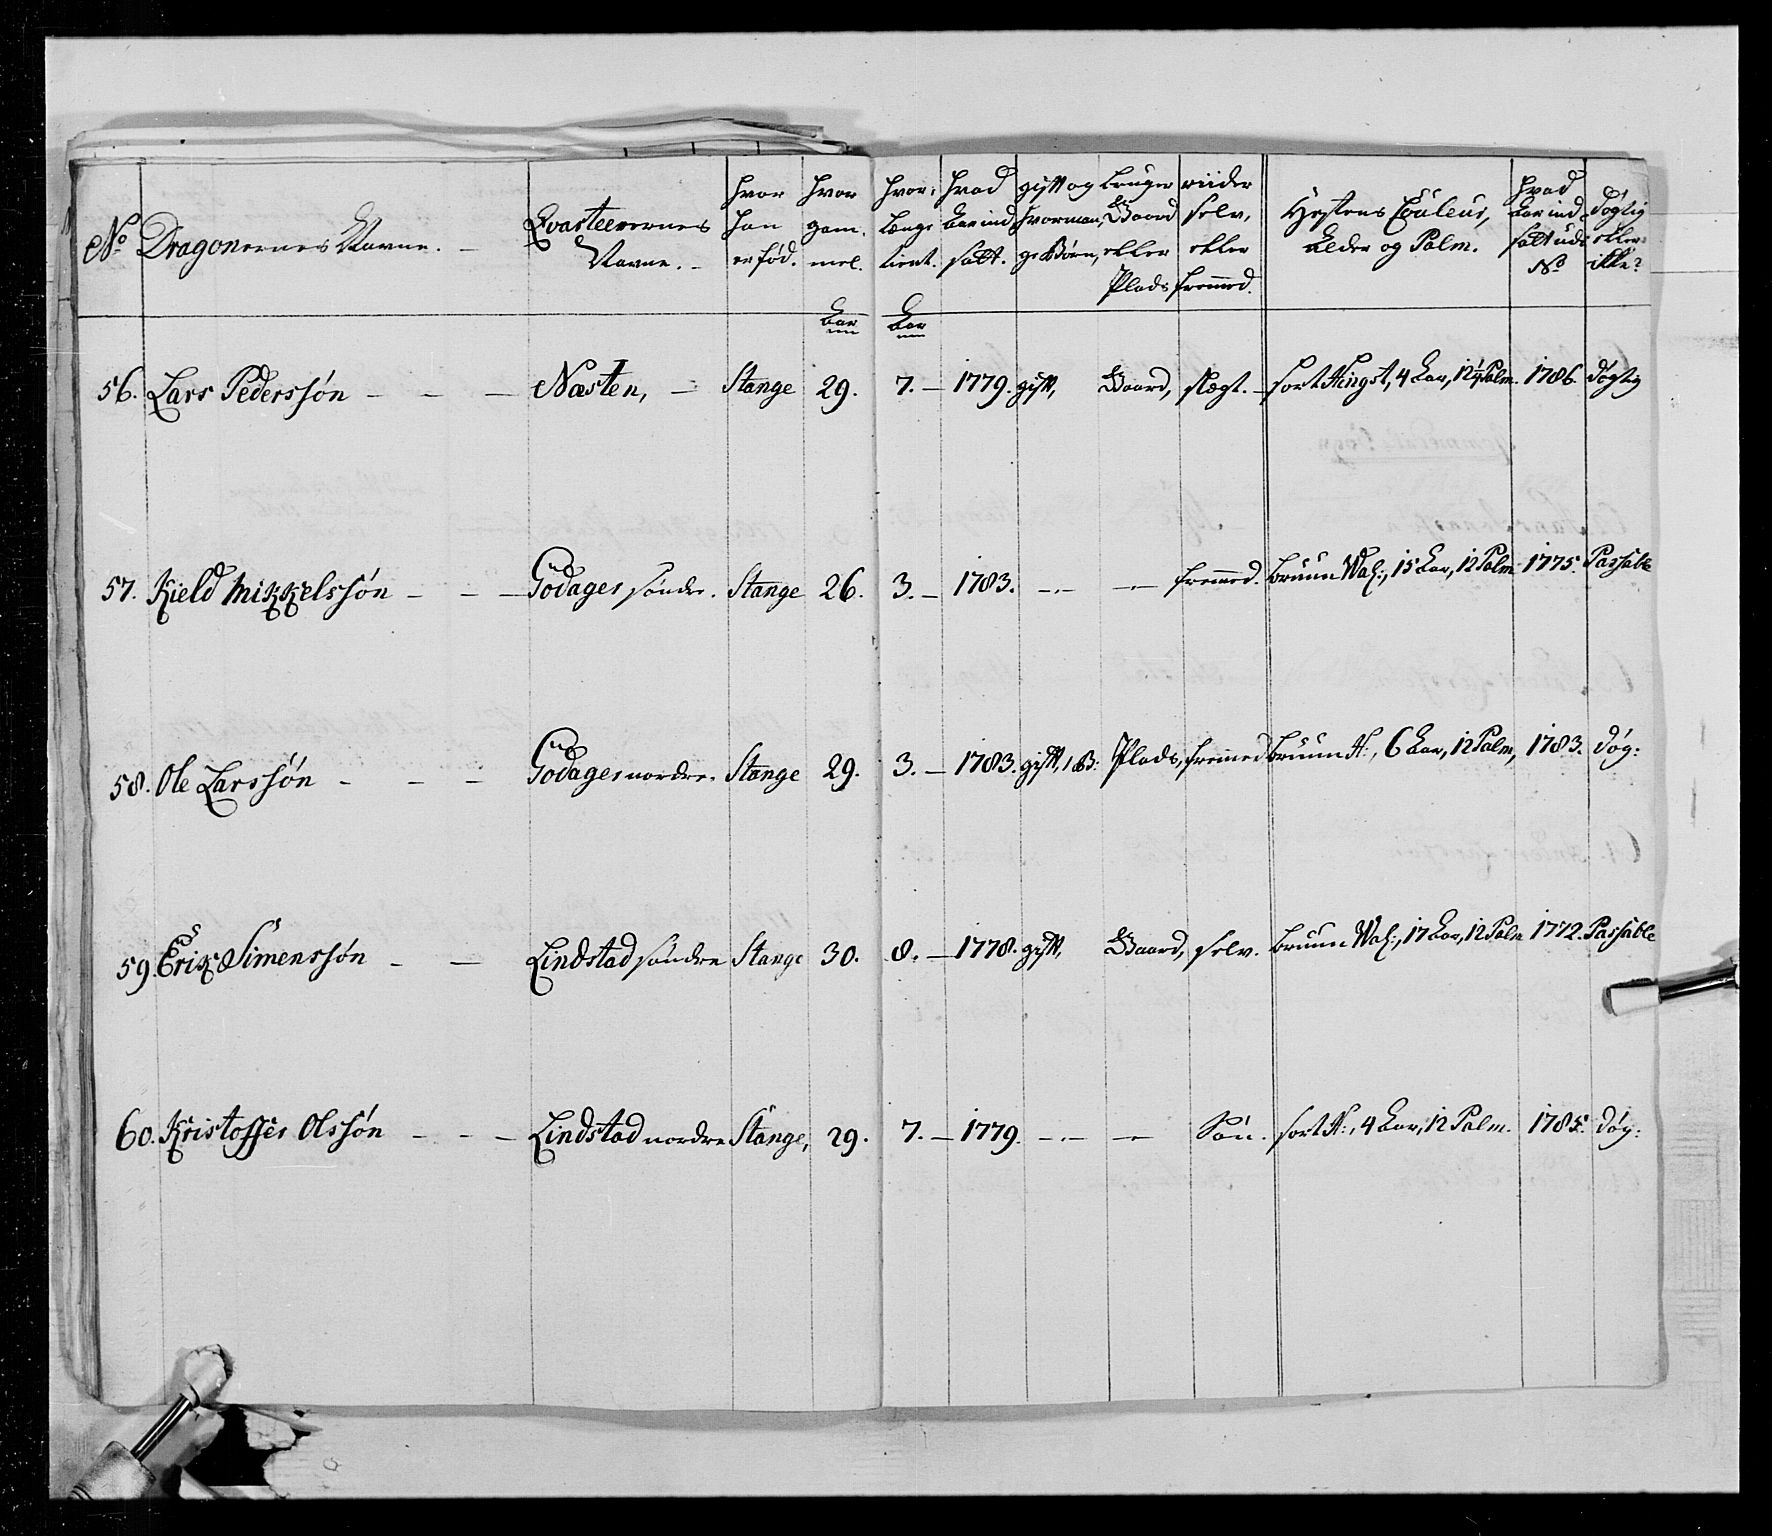 No
Dragonernes Navne. -
Qvarteerernes
Navne. -
hvor
han
er fød.
hvor
gam-
mel.
hvor-
længe
tient.
hvad
Aar ind
satt.
gift og
hvorman-
ge Børn,
bruger
Gaard
eller
Plads
riider
selv,
eller
fremmed.
Hestens Couleur,
Alder og Palm.
hvad
Aar ind
satt udi
No
døgtig
eller
ikke?
Aar
Aar
56. Lars Pederssøn - - - Næsten, - Stange 29. 7. - 1779. gift, Gaard, slegt. - sort Hingst, 4 Aar, 12¼ Palm. 1786. døgtig
57. Kield Mikkelssøn - - - Godager søndre. Stange 26. 3. - 1783. - - - fremmed. bruun Val:, 15 Aar, 12 Palm 1775. Passable
58. Ole Larssøn - - - Godager nordre. Stange 29. 3. - 1783. gift, 1 B: Plads, fremmed bruun H:, 6 Aar, 12 Palm, 1783. døg:
59. Erik Simenssøn - - Lindstad søndre Stange 30. 8. - 1778. gift, Gaard, selv. bruun Val:, 17 Aar, 12 Palm 1772. Passable
60. Kristoffer Olssøn - - - Lindstad nordre Stange, 29. 7. - 1779. - - - Søn. sort H:, 4 Aar, 12 Palm. 1785. døg: